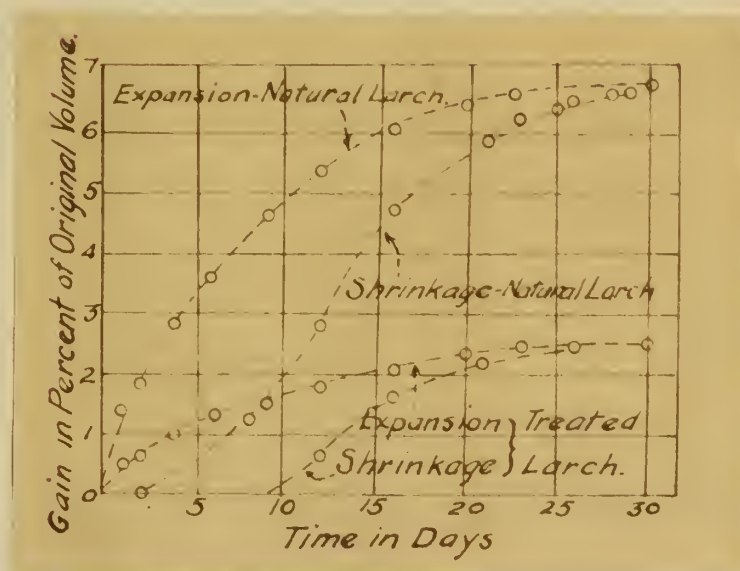 Gain in Percent of Original Volume.
7
6
5
4
3
2
1
0
Expansion-Natural Larch.
Shrinkage-Natural Larch
Expansion } Treated
Shrinkage } Larch.
5 10 15 20 25 30
Time in Days